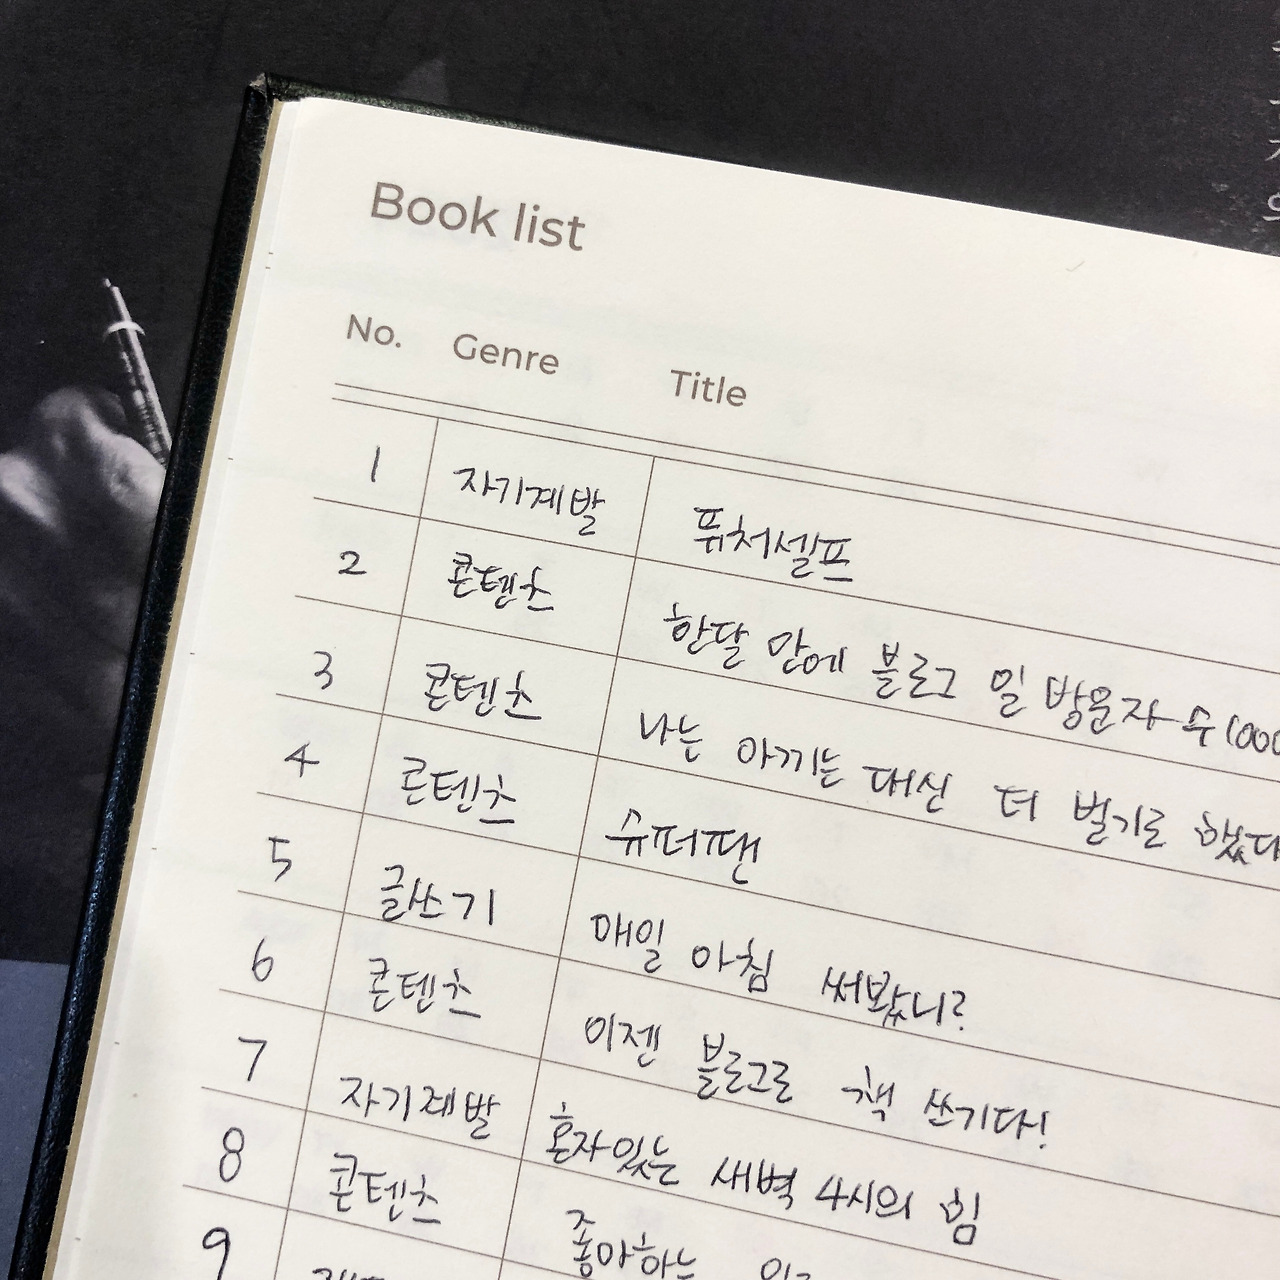 Book list
No. Genre Title
1 자기계발 퓨처셀프
2 콘텐츠 한달 안에 블로그 일 방문자 수 1000
3 콘텐츠 나는 아끼는 대신 더 벌기로 했다
4 콘텐츠 슈퍼팬
5 글쓰기 매일 아침 써봤니?
6 콘텐츠 이젠 블로그로 책 쓰기다!
7 자기계발 혼자있는 새벽 4시의 힘
8 콘텐츠 좋아하는
9